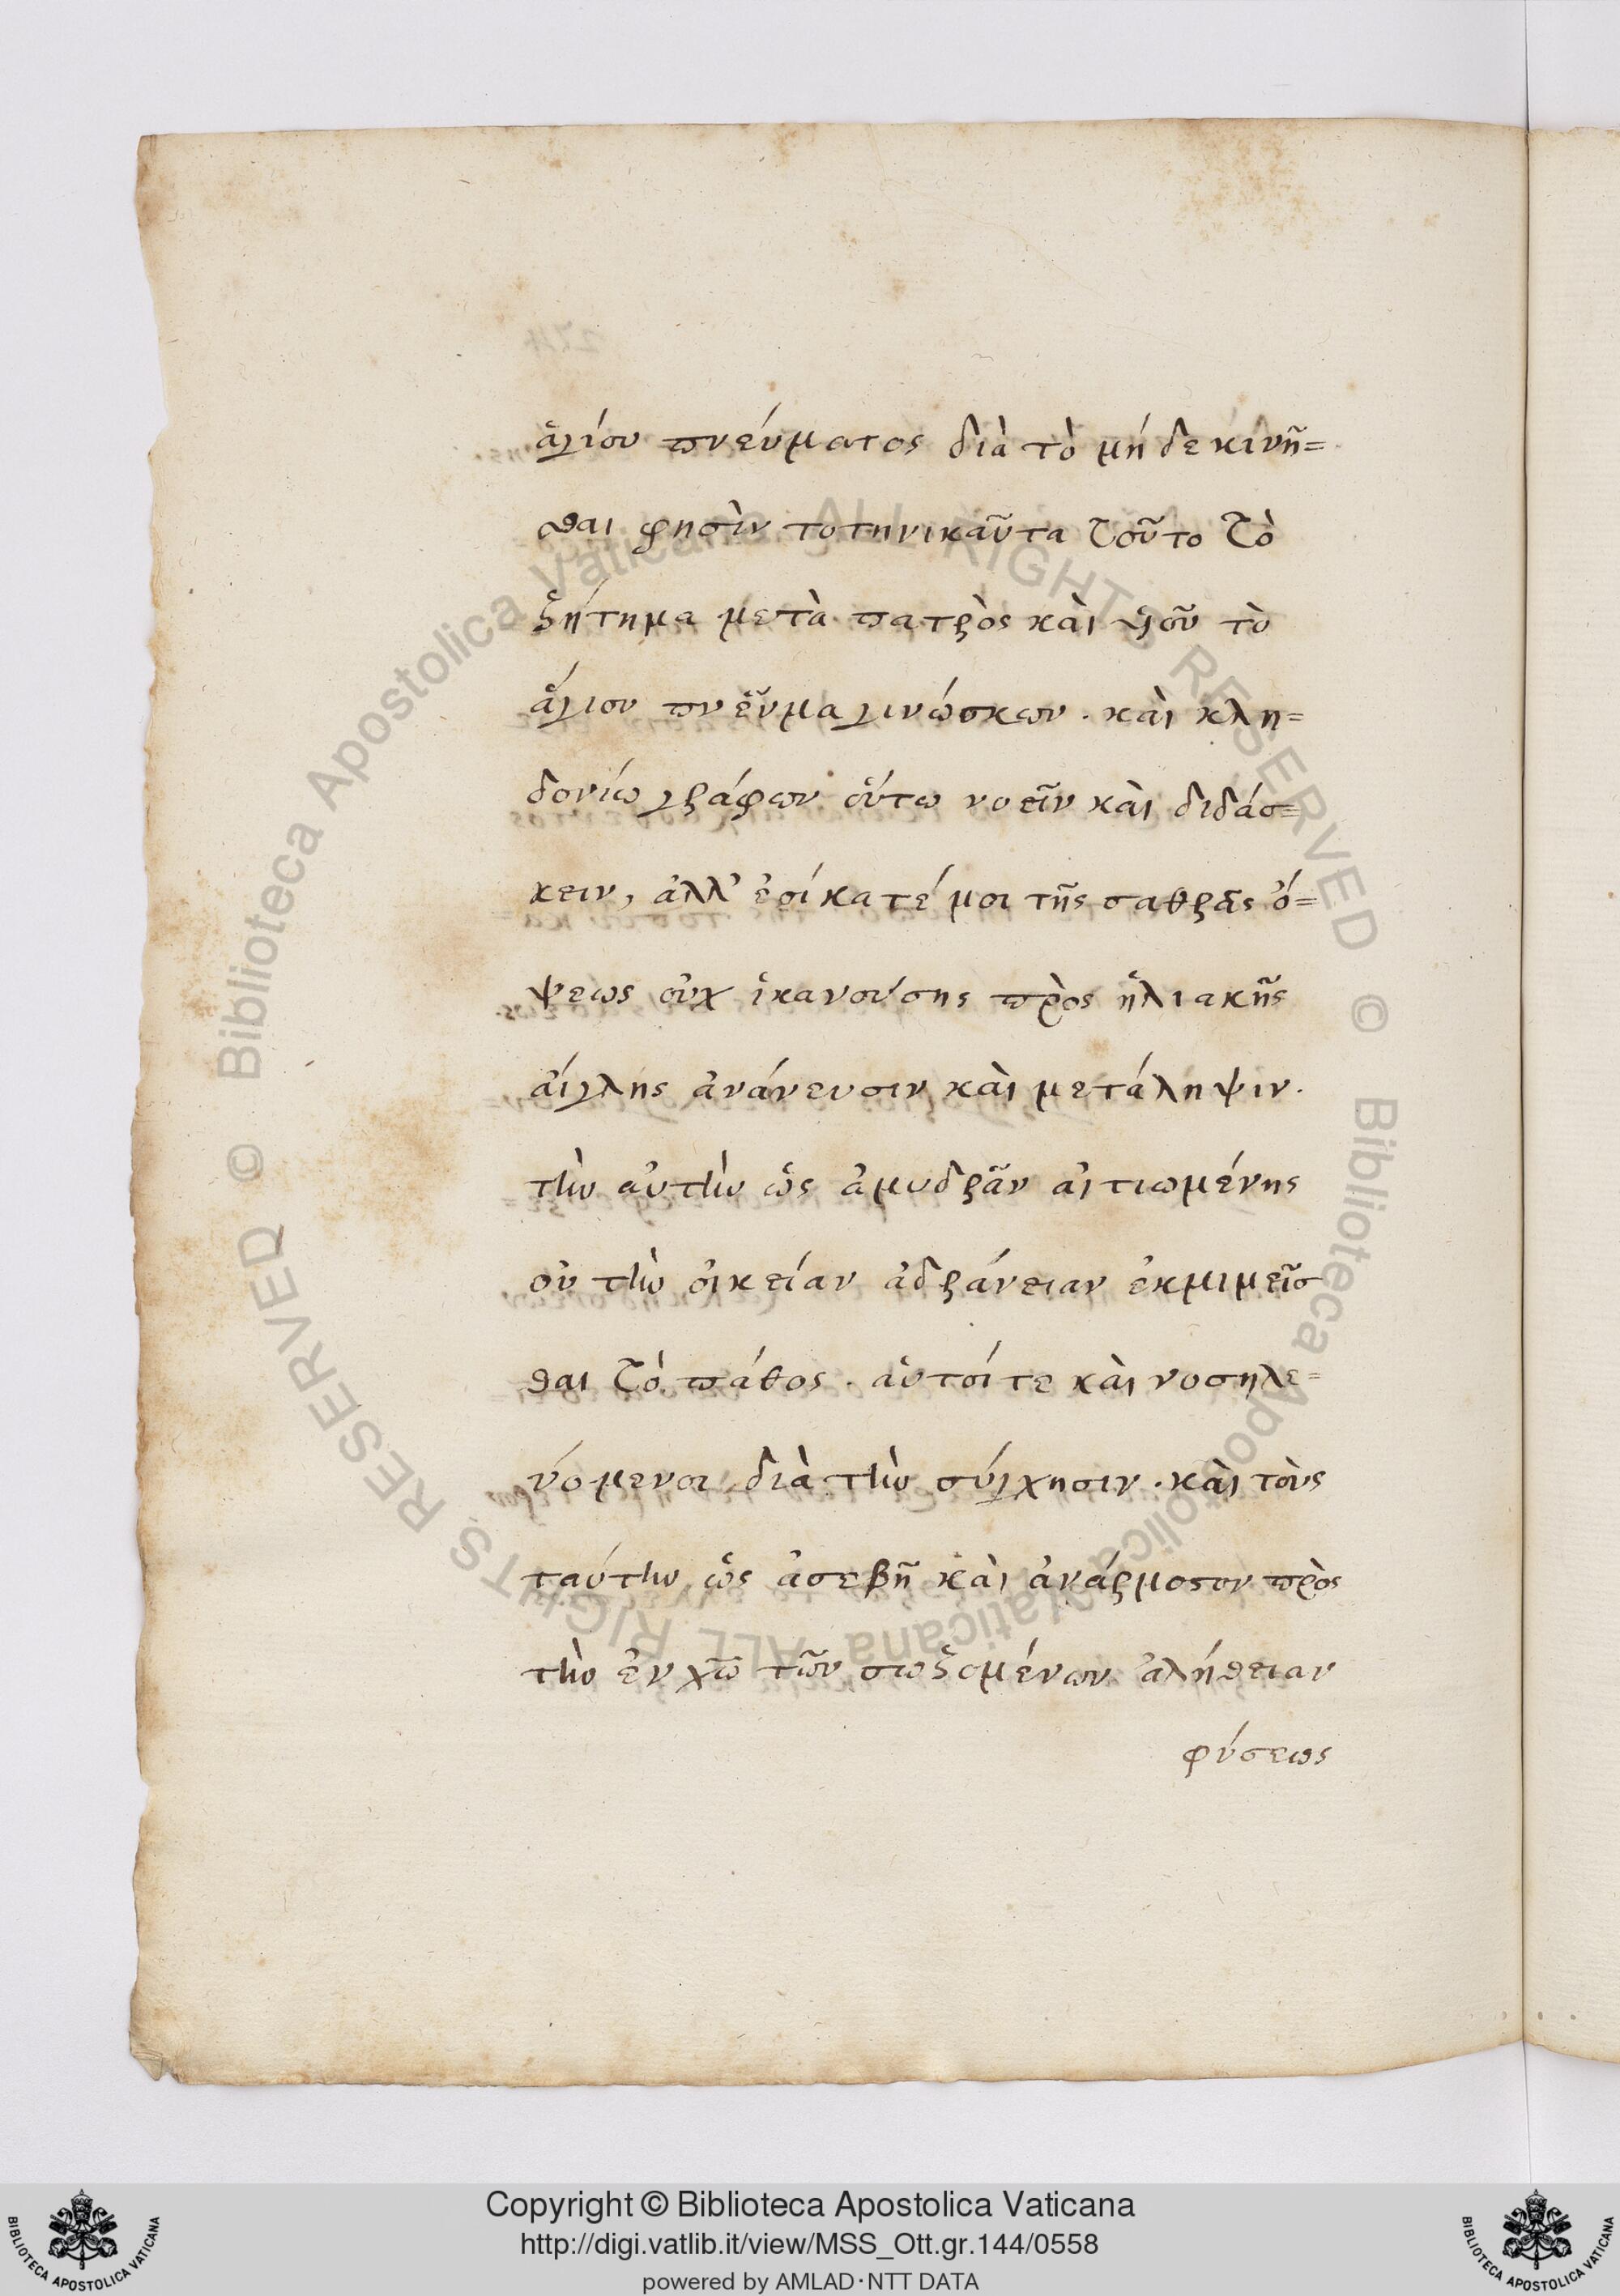 ἁγίου πνεύματος διὰ τὸ μή δε κινῆ=
σθαι φησὶν τοτηνικαῦτα τοῦτο τὸ
ζήτημα μετὰ πατρὸς καὶ υἱοῦ τὸ
ἅγιον πνεῦμα γινώσκων. καὶ κλη=
δονίω γράφων οὕτω νοεῖν καὶ διδάσ=
κειν, ἀλλ' ἐοί κατέ μοι τῆς σαθρᾶς ὄ=
ψεως οὐχ ἱκανούσης πρὸς ἡλιακῆς
αἴγλης ἀνάνευσιν καὶ μετάληψιν.
τὴν αὐτὴν ὡς ἀμυδρᾶν αἰτιωμένης
οὐ τὴν οἰκείαν ἀδράνειαν ἐκμιμεῖσ
θαι τὸ πάθος. αὐτοί τε καὶ νοσηλε=
υόμενοι διὰ τὴν σύγχησιν. καὶ τοὺς
ταύτην ὡς ἀσεβῆ καὶ ἀνάρμοστον πρὸς
τὴν ἐν χω τῶν σωζομένων ἀλήθειαν
φύσεως
© Biblioteca Apostolica Vaticana ALL RIGHTS RESERVED © Biblioteca Apostolica Vaticana ALL RIGHTS RESERVED
Copyright © Biblioteca Apostolica Vaticana
http://digi.vatlib.it/view/MSS_Ott.gr.144/0558
powered by AMLAD·NTT DATA
BIBLIOTECA APOSTOLICA VATICANA
BIBLIOTECA APOSTOLICA VATICANA